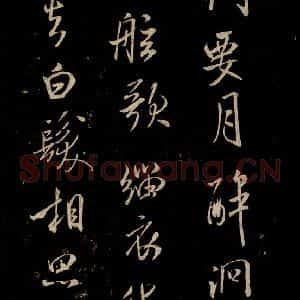 要月醉洞
船歌緇衣
白髮相思
Shufawang.CN